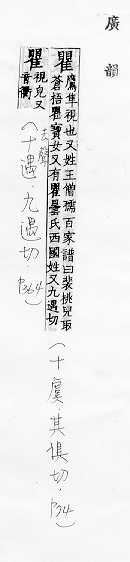 廣韻
瞿 鷹隼視也又姓王僧孺百家譜曰裴桃兒取
蒼梧瞿寶女又有瞿曇氏西國姓又九遇切
(十虞．其俱切．P34)
瞿 視皃又
音衢
去聲
(十遇．九遇切．P364)